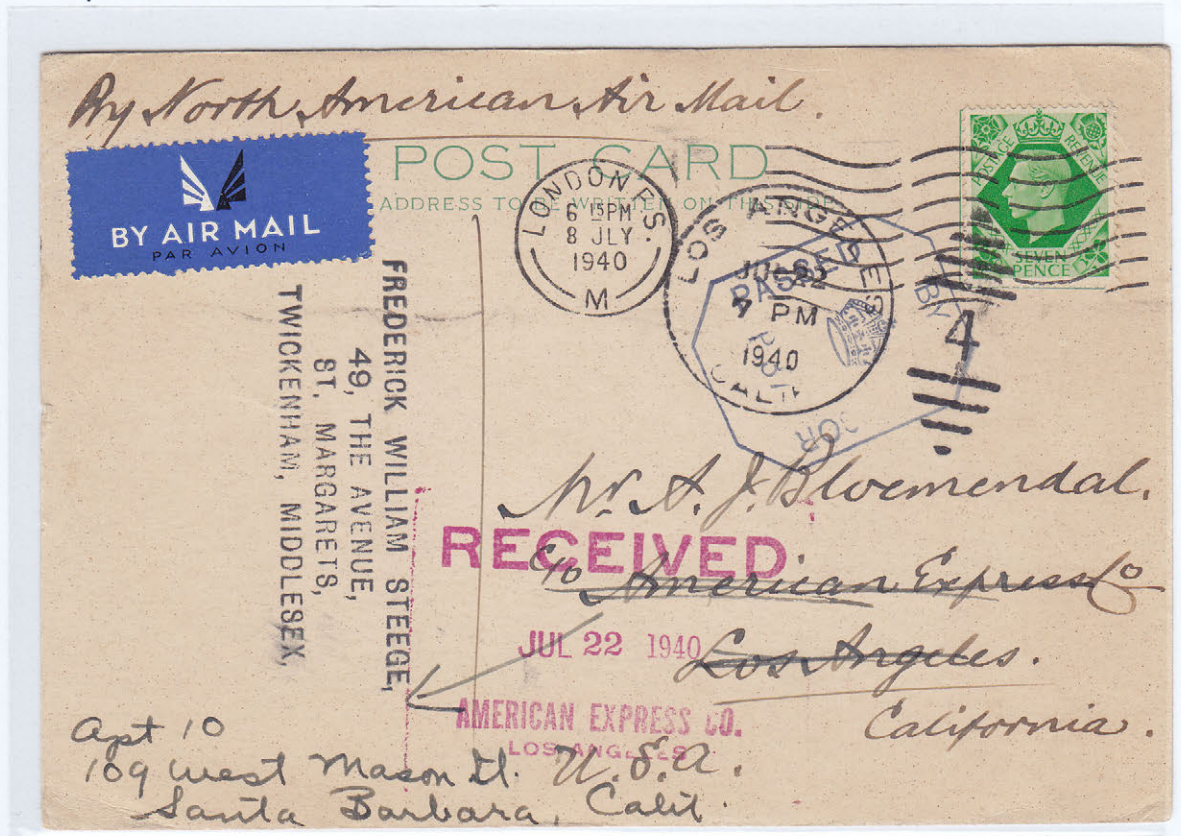 By North American Air Mail.
BY AIR MAIL
PAR AVION
POST CARD
ADDRESS TO BE WRITTEN ON THIS
LONDON F.S.
6 15PM
8 JLY
1940
M
LOS ANGELES
JUL
7 PM
1940
CALIF
PASSED
POSTAGE REVENUE
SEVEN
PENCE
4
FREDERICK WILLIAM STEEGE,
49, THE AVENUE,
ST. MARGARETS,
TWICKENHAM, MIDDLESEX,
Mr. A. J. Bloemendal.
RECEIVED
c/o American Express Co
JUL 22 1940
Los Angeles.
AMERICAN EXPRESS CO.
LOS ANGELES
California.
U.S.A.
Apt 10
109 West Mason St.
Santa Barbara, Calif.